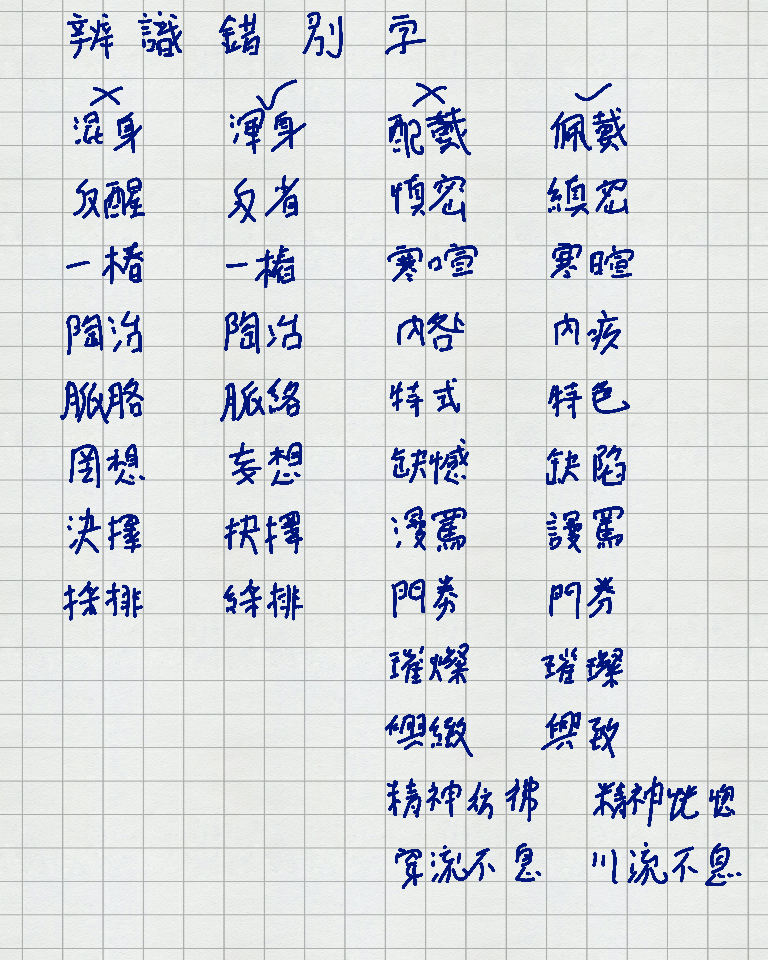 辨識錯別字
× ✓ × ✓
混身 渾身 配戴 佩戴
反醒 反省 慎密 縝密
一樁 一樁 寒喧 寒暄
陶治 陶冶 內咎 內疚
脈胳 脈絡 特式 特色
罔想 妄想 缺憾 缺陷
決擇 抉擇 漫罵 謾罵
採排 綵排 門券 門券
璀燦 璀璨
興緻 興致
精神彷彿 精神恍惚
穿流不息 川流不息